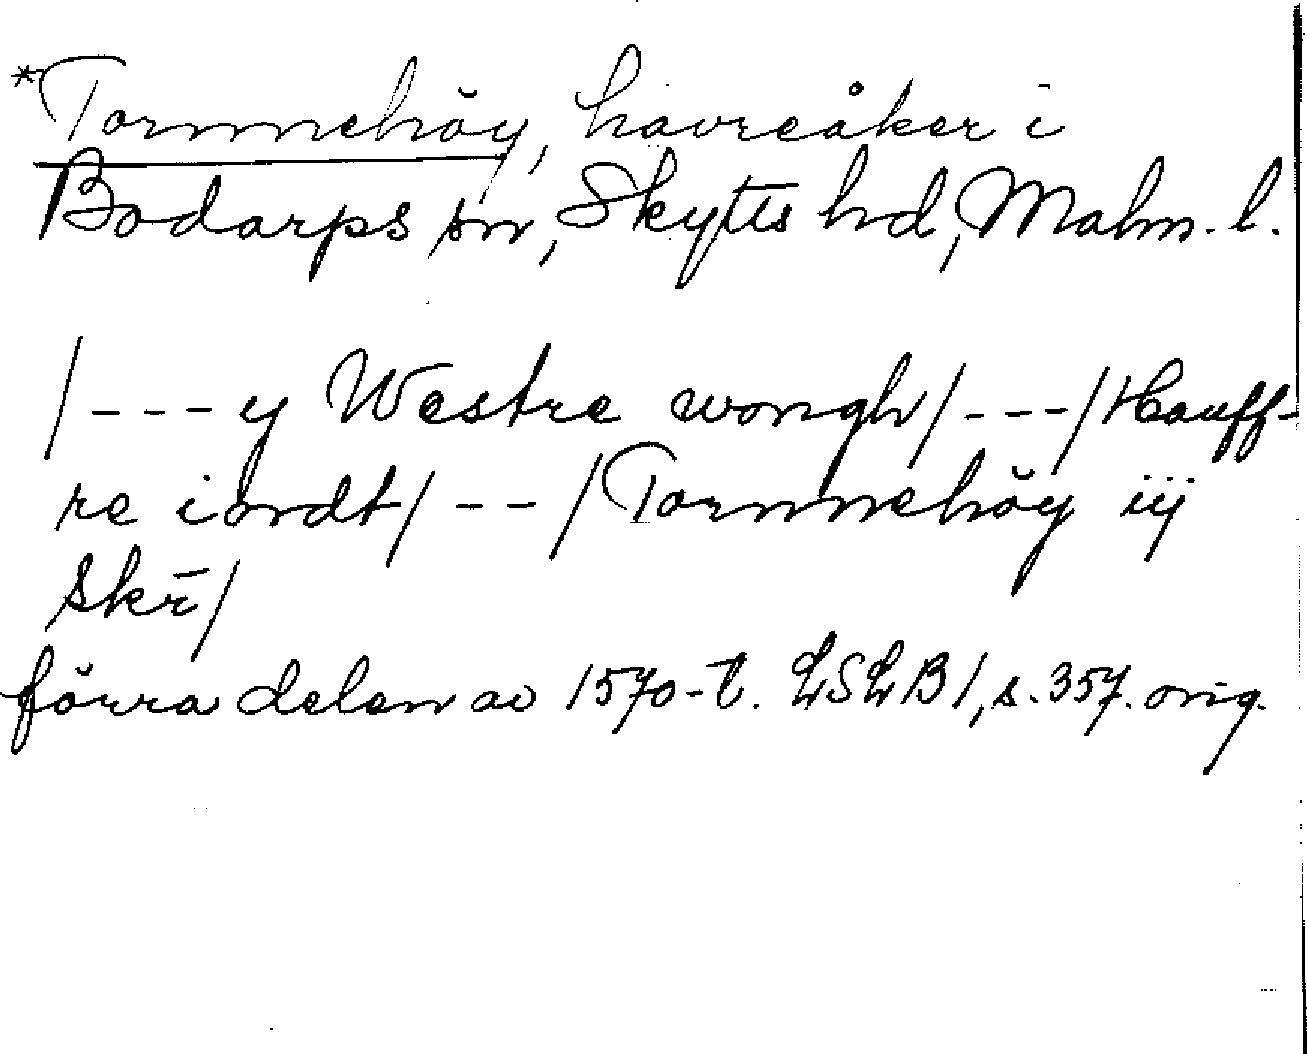 *Tornnehöy, havreåker i
Bodarps sn, Skytts hd, Malm. l.
/---y Westre wongh/---/Hauff-
re iordt/--/Tornnehöy iij
skr̄/
förra delen av 1570-t. LSLB1, s. 357. orig.